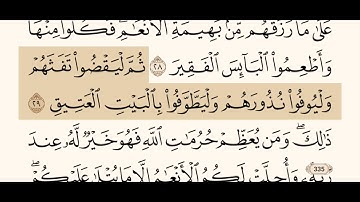 عَلَىٰ مَا رَزَقَهُم مِّنۢ بَهِيمَةِ ٱلْأَنْعَٰمِۖ فَكُلُوا۟ مِنْهَا
وَأَطْعِمُوا۟ ٱلْبَآئِسَ ٱلْفَقِيرَ ٢٨ ثُمَّ لْيَقْضُوا۟ تَفَثَهُمْ
وَلْيُوفُوا۟ نُذُورَهُمْ وَلْيَطَّوَّفُوا۟ بِٱلْبَيْتِ ٱلْعَتِيقِ ٢٩
ذَٰلِكَۖ وَمَن يُعَظِّمْ حُرُمَٰتِ ٱللَّهِ فَهُوَ خَيْرٌ لَّهُۥ عِندَ
رَبِّهِۦۗ وَأُحِلَّتْ لَكُمُ ٱلْأَنْعَٰمُ إِلَّا مَا يُتْلَىٰ عَلَيْكُمْۖ
335